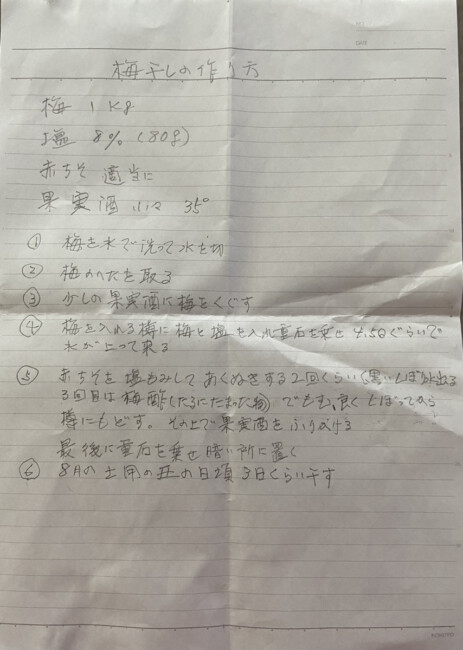 梅干しの作り方
梅 1Kg
塩 8% (80g)
赤ちそ 適当に
果実酒 35°
① 梅を水で洗って水を切
② 梅のへたを取る
③ 少しの果実酒に梅をくぐす
④ 梅を入れる樽に梅と塩を入れ重石を乗せ 4.5日ぐらいで
水が上って来る
⑤ 赤ちそを塩もみしてあくぬきする2回くらい(黒いしぼり水出る
3回目は梅酢(たるにたまった物)でもも、良くしぼってから
樽にもどす。その上で果実酒をふりかける
最後に重石を乗せ暗い所に置く
⑥ 8月の土用の丑の日頃 3日くらい干す